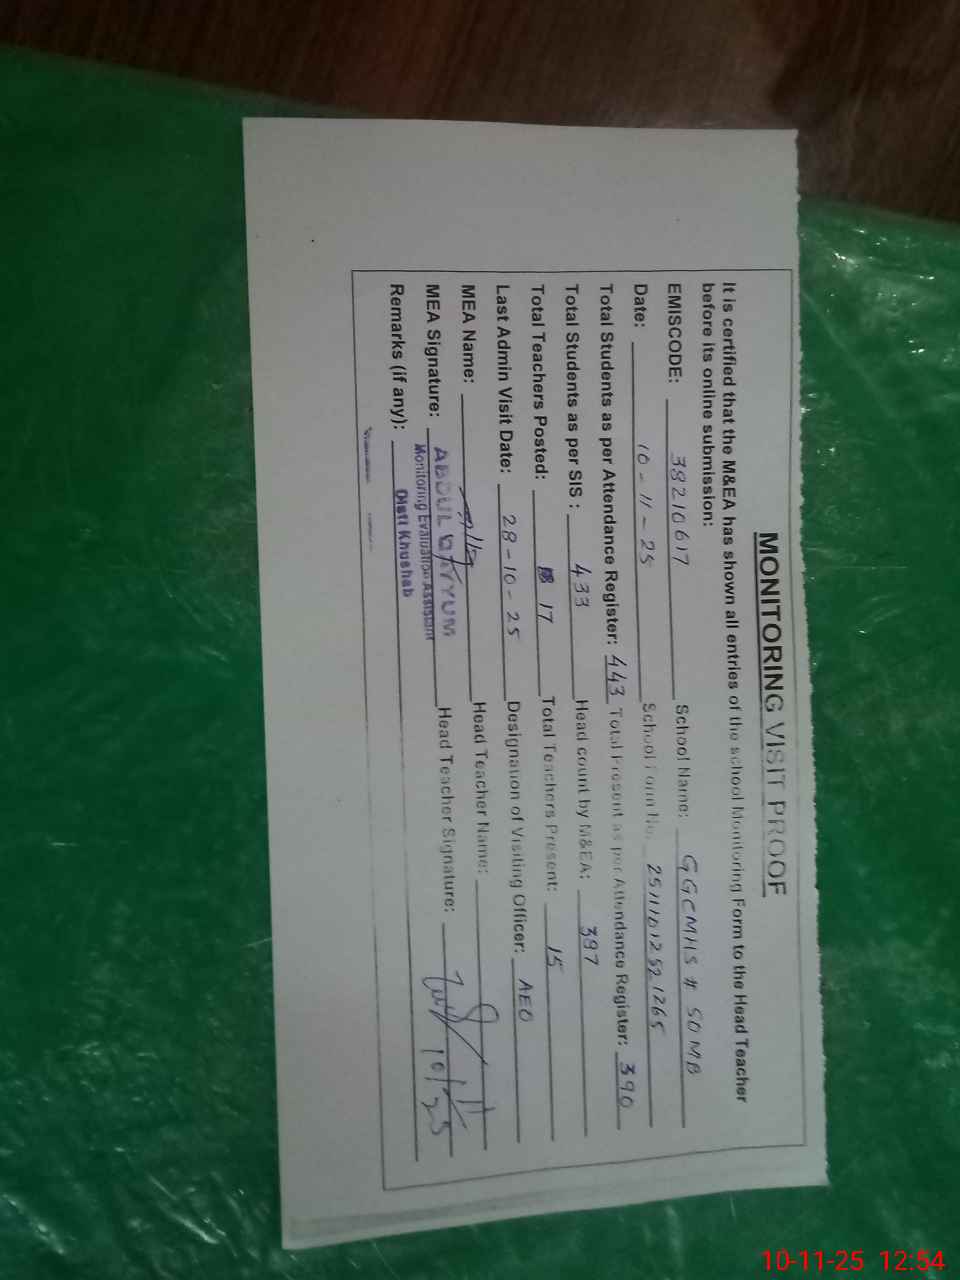 MONITORING VISIT PROOF
It is certified that the M&EA has shown all entries of the school Monitoring Form to the Head Teacher
before its online submission:
EMISCODE: 38210617 School Name: GGCMHS # 50MB
Date: 10-11-25 School Form No. 25111012521265
Total Students as per Attendance Register: 443 Total Present as per Attendance Register: 390
Total Students as per SIS : 433 Head count by M&EA: 387
Total Teachers Posted: 17 Total Teachers Present: 15
Last Admin Visit Date: 28-10-25 Designation of Visiting Officer: AEO
MEA Name: Head Teacher Name:
MEA Signature: ABDUL QAYYUM Head Teacher Signature:
Monitoring Evaluation Assistant
Remarks (if any): Distt Khushab
10-11-25 12:54